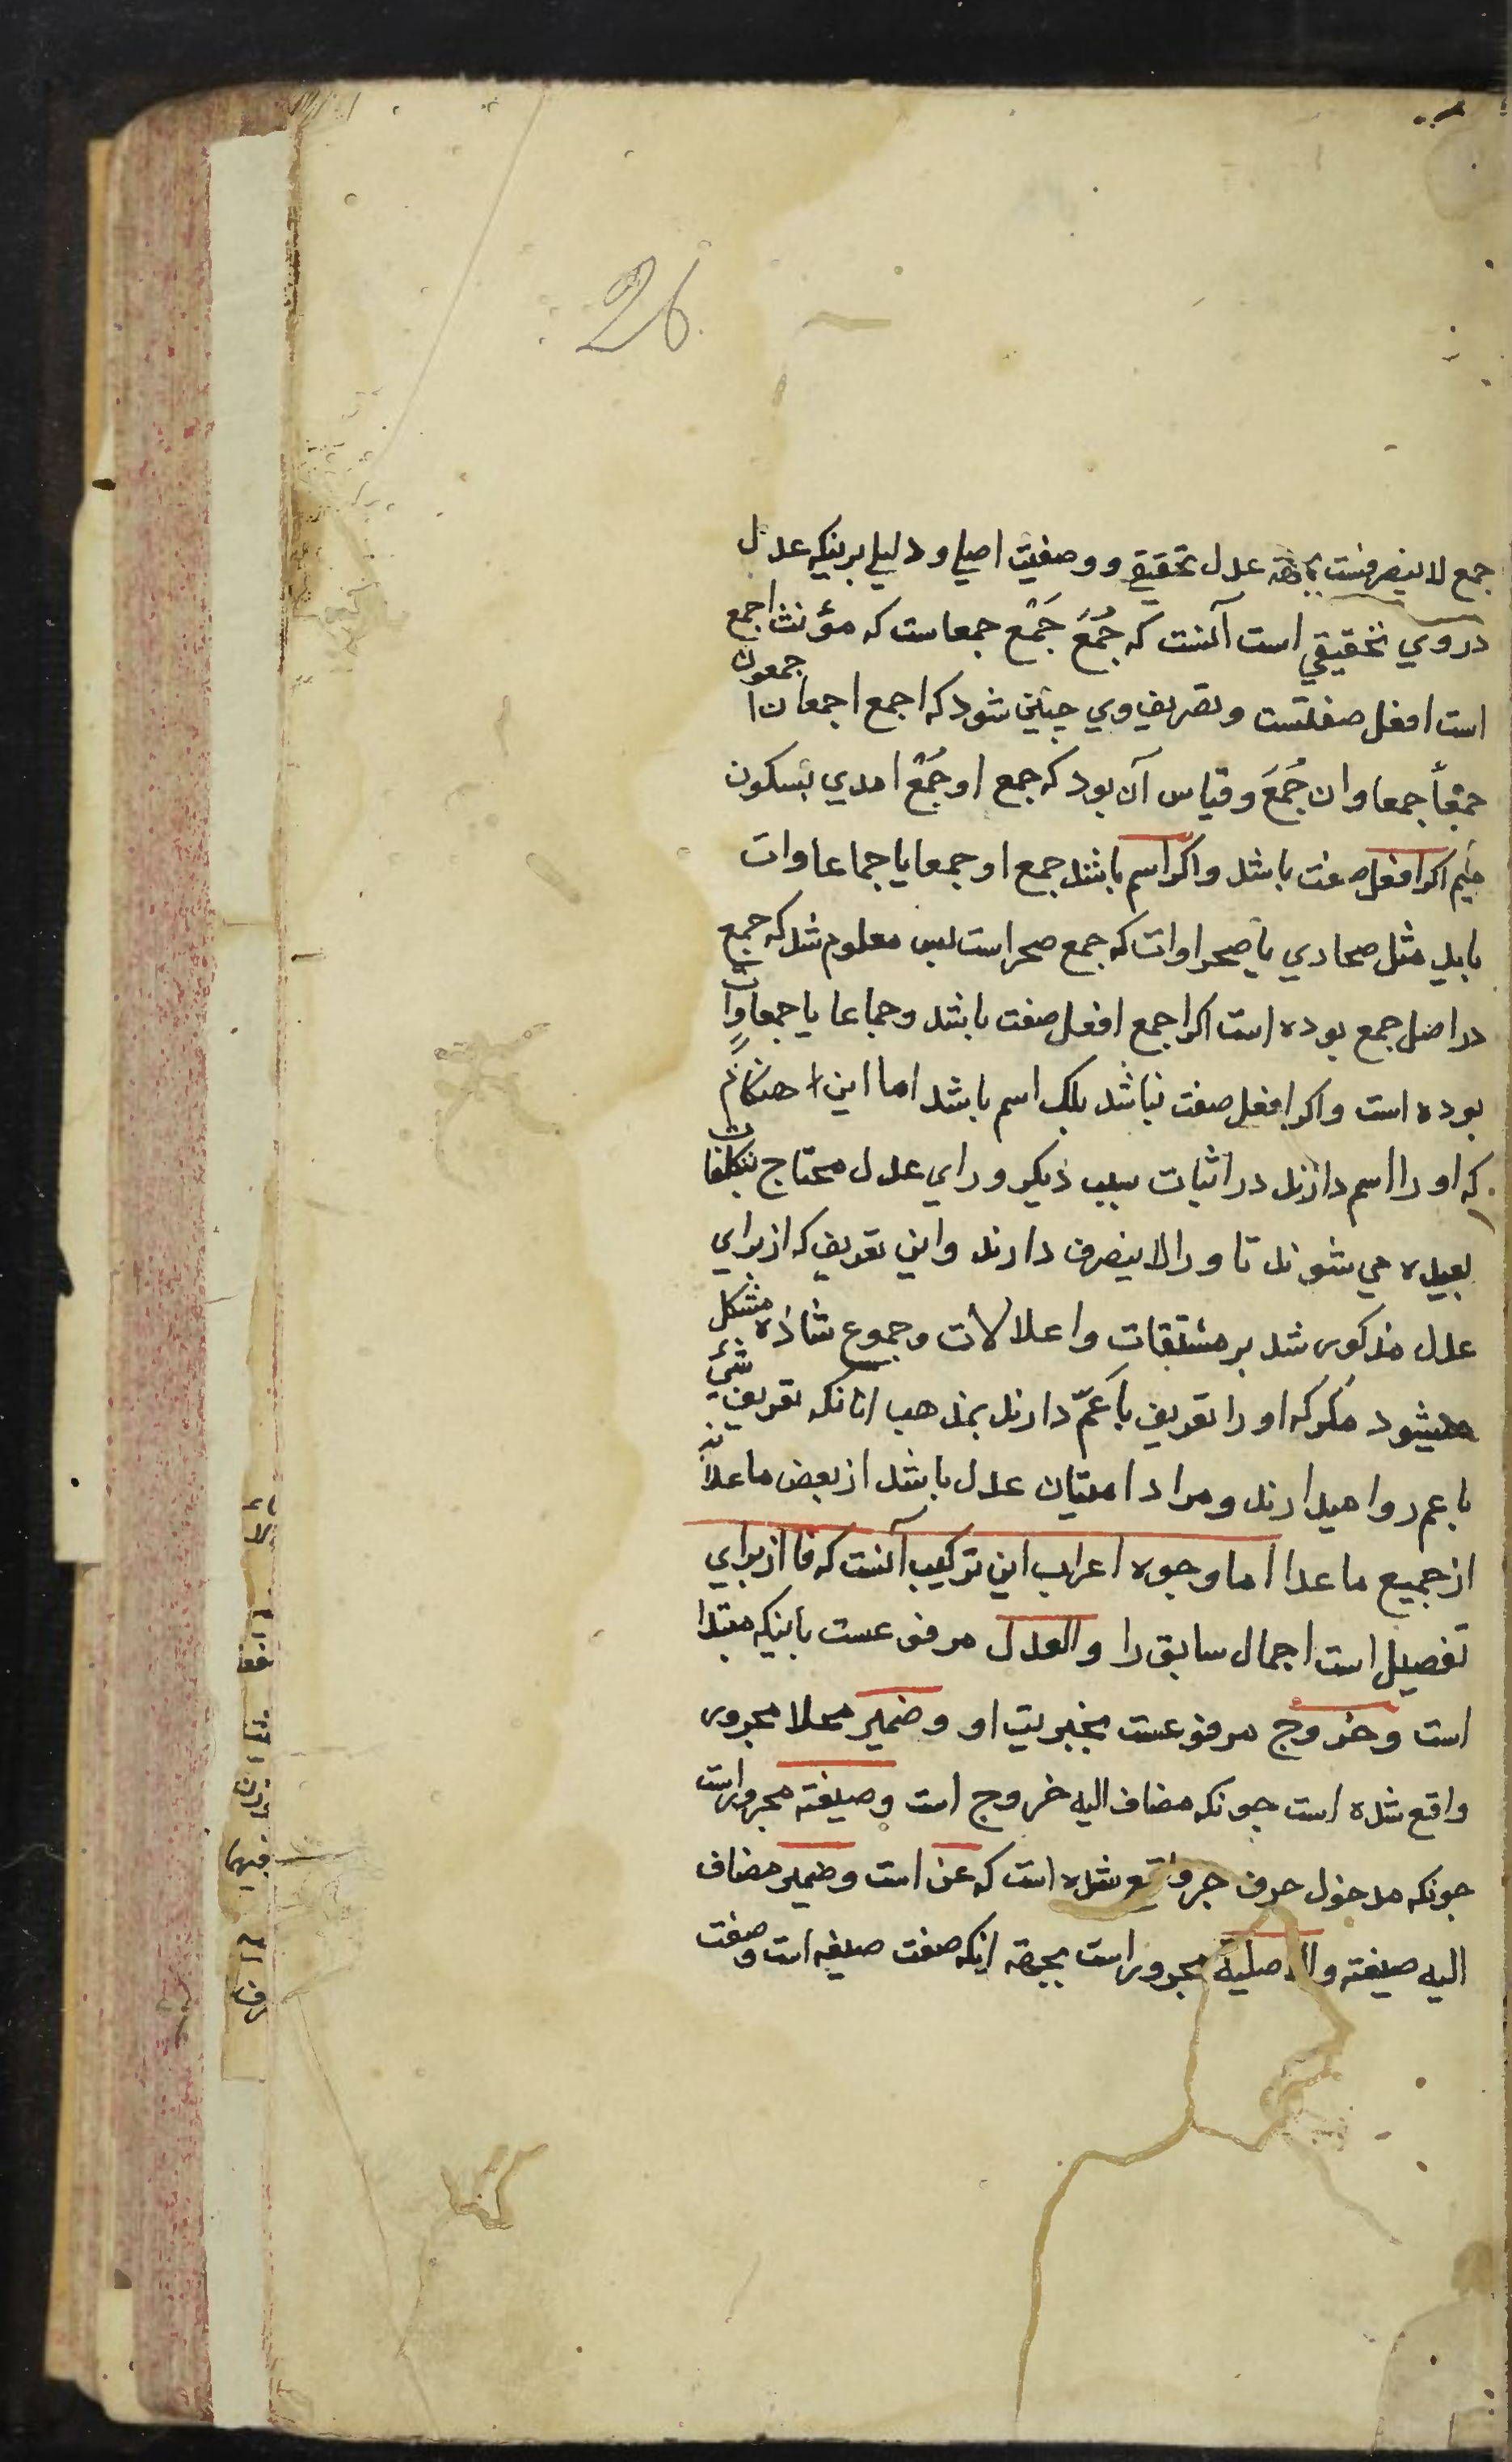 26
جمع لا ينصرفست بجهة عدل تحقيقي ووصفيت اصلي و دليلي برينكه عدل
در وي تحقيقي است آنست كه جُمَعَ جَمْع جمعاست كه مؤنث اجمع
است افعل صفتست وتصريف وي چنين شود كه اجمع اجمعان اجمعون
جمعاً جمعاوان جُمَعَ وقياس آن بود كه جمع او جُمْع امدي بسكون
ميم اكر افعل صفت باشد واكر اسم باشد جمع او جمعايا جماعاوات
بايد مثل صحاري يا صحراوات كه جمع صحراست پس معلوم شد كه جمع
در اصل جمع بوده است اكر اجمع افعل صفت باشد وجماعا يا جمعاوات
بوده است واكر افعل صفت نباشد بلك اسم باشد اما اين هنكام
كه او را اسم دارند در اثبات سبب ديكر وراي عدل محتاج بتكلفات
بعيده مي شوند تا ورا لا ينصرف دارند واين تعريف كه از براي
عدل مذكور شد بر مشتقات واعلالات وجموع شاذه مشكل
ميشود مكر كه او را تعريف باَعَمّ دارند بمذهب انانكه تعريف شئ
باعم روا ميدارند ومراد امتيان عدل باشد از بعض ماعدا نه
از جميع ماعدا اما وجوه اعراب اين تركيب آنست كه فا از براي
تفصيل است اجمال سابق را والعدل مرفوعست باينكه مبتدا
است وخروج مرفوعست بخبريت او وضمير محلا مجرور
واقع شده است چونكه مضاف اليه خروج است وصيغته مجرور است
چونكه مدخول حرف جر واقع شده است كه عن است وضمير مضاف
اليه صيغته والاصلية مجرور است بجهة اينكه صفت صيغه است وصفت